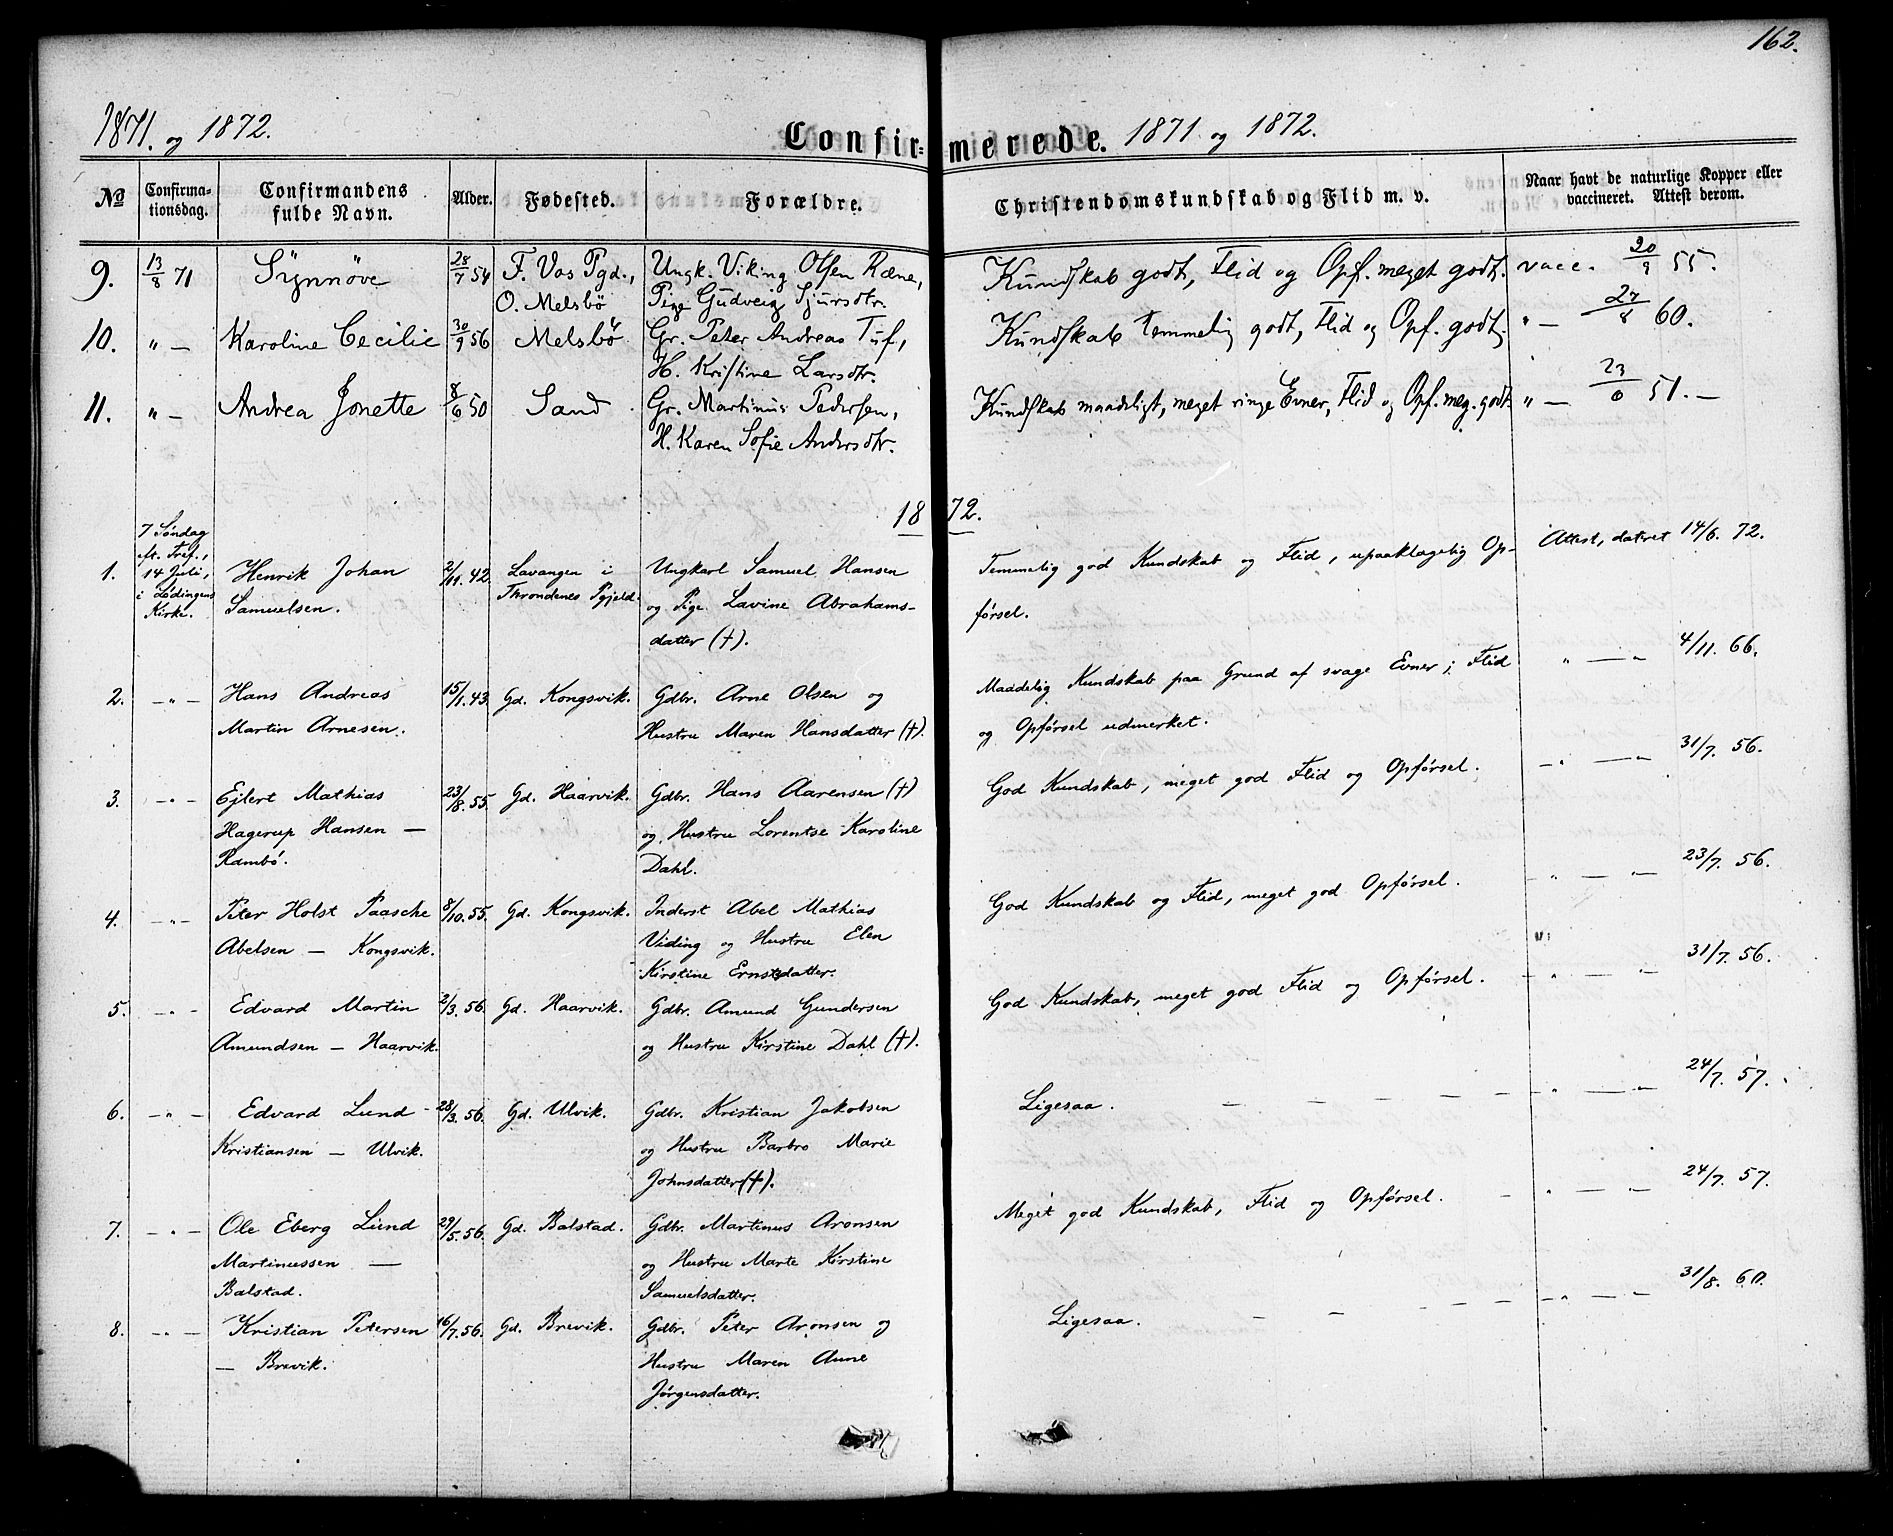 162.
1871. og 1872.
Confirmerede. 1871 og 1872.
No Confirmationsdag. Confirmandens fulde Navn. Alder. Fødested. Forældre. Christendomskundskab og Flid m. v. Naar havt de naturlige Kopper eller vaccineret. Attest derom.
9. 13/8 71 Synnøve 28/7 54 F. Vos Pgd., Ungk. Viking Olsen Ræne, Kundskab godt, Flid og Opf. meget godt. vacc. 20/9 55.
O. Melsbö Pige Gudveig Sjursdtr.
10. " — Karoline Cecilie 30/9 56 Melsbö Gr. Peter Andreas Tuf, Kundskab temmelig godt, Flid og Opf. godt. " — 27/8 60.
H. Kristine Larsdtr.
11. " — Andrea Jonette 8/6 50 Sand Gr. Martinus Pedersen, Kundskab maadeligt, meget ringe Evner, Flid og Opf. meg. godt. " — 23/6 51. —
H. Karen Sofie Andersdtr.
1872.
7 Søndag
eft. Tref.,
1. 14 Juli, Henrik Johan 2/11. 42. Lavangen i Ungkarl Samuel Hansen Temmelig god Kundskab og Flid, upaaklagelig Op- Attest, dateret 14/6. 72.
i Lødingens Samuelsen. Throndenes Pgjeld. og Pige Lavine Abrahams- førsel.
Kirke. datter (†).
2. — " — Hans Andreas 15/1. 43. Gd. Kongsvik. Gdbr. Arne Olsen og Maadelig Kundskab paa Grund af svage Evner; Flid " — " 4/11. 66.
Martin Arnesen. Hustru Maren Hansdatter (†). og Opførsel udmerket.
3. — " — Ejlert Mathias 23/8. 55. Gd. Haarvik. Gdbr. Hans Aarensen (†) God Kundskab, meget god Flid og Opførsel. — " — " — 31/7. 56.
Hagerup Hansen — og Hustru Lorentse Karoline
Rambö. Dahl.
4. — " — Peter Holst Paasche 8/10. 55. Gd. Kongsvik. Inderst Abel Mathias God Kundskab og Flid, meget god Opførsel. — " — " — 23/7. 56.
Abelsen — Kongsvik. Viding og Hustru Elen
Kirstine Ernstsdatter.
5. — " — Edvard Martin 2/3. 56. Gd. Haarvik. Gdbr. Amund Gundersen God Kundskab, meget god Flid og Opførsel. — " — " — 31/7. 56.
Amundsen — Haarvik. og Hustru Kirstine Dahl (†).
6. — " — Edvard Lund 28/3. 56. Gd. Ulvik. Gdbr. Kristian Jakobsen Ligesaa. — — — — — — — " — " — 24/7. 57.
Kristiansen — Ulvik. og Hustru Barbro Marie
Johnsdatter (†).
7. — " — Ole Eberg Lund 29/5. 56. Gd. Balstad. Gdbr. Martinus Aronsen Meget god Kundskab, Flid og Opførsel. — " — " — 24/7. 57.
Martinussen — og Hustru Marte Kirstine
Balstad. Samuelsdatter.
8. — " — Kristian Petersen 16/7. 56. Gd. Brevik. Gdbr. Peter Aronsen og Ligesaa. — — — — — " — " — 31/8. 60.
— Brevik. Hustru Maren Anne
Jørgensdatter.